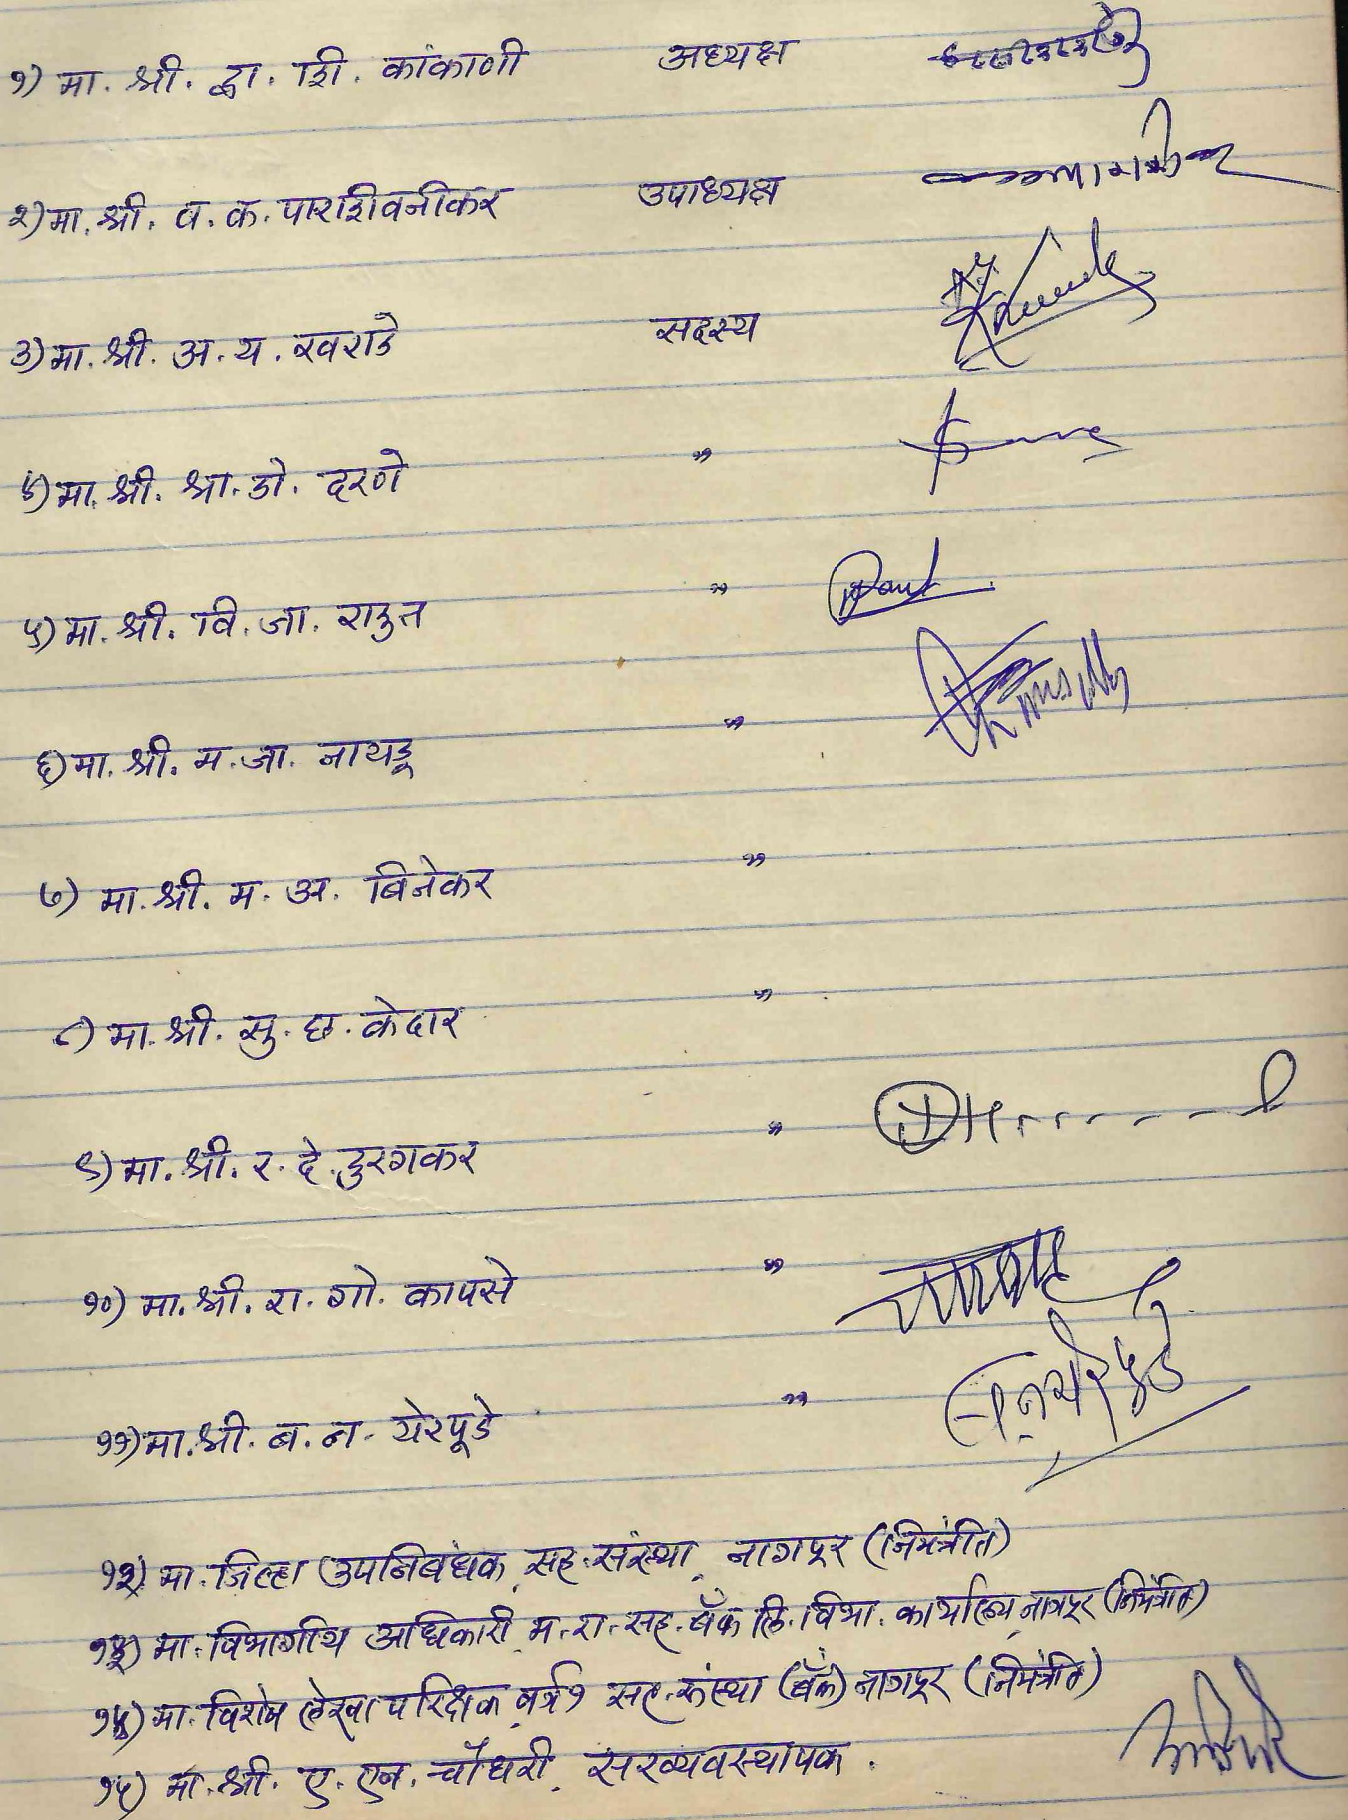 १) मा. श्री. द्वा. शि. कांकाणी अध्यक्ष
२) मा. श्री. व. क. पारशिवनीकर उपाध्यक्ष
३) मा. श्री. अ. य. खराडे सदस्य
४) मा. श्री. श्रा. डो. दरणे "
५) मा. श्री. वि. जा. राऊत "
६) मा. श्री. म. जा. नायडू "
७) मा. श्री. म. अ. बिनेकर "
८) मा. श्री. सु. छ. केदार "
९) मा. श्री. र. दे. दुरुगकर "
१०) मा. श्री. रा. गो. कापसे "
११) मा. श्री. ब. न. येरपूडे "
१२) मा. जिल्हा उपनिबंधक, सह. संस्था, नागपूर (निमंत्रीत)
१३) मा. विभागीय अधिकारी म. रा. सह. बँक लि. विभा. कार्यालय, नागपूर (निमंत्रीत)
१४) मा. विशेष लेखा परिक्षक वर्ग १ सह. संस्था (बँक) नागपूर (निमंत्रीत)
१५) मा. श्री. ए. एन. चौधरी, सरव्यवस्थापक.